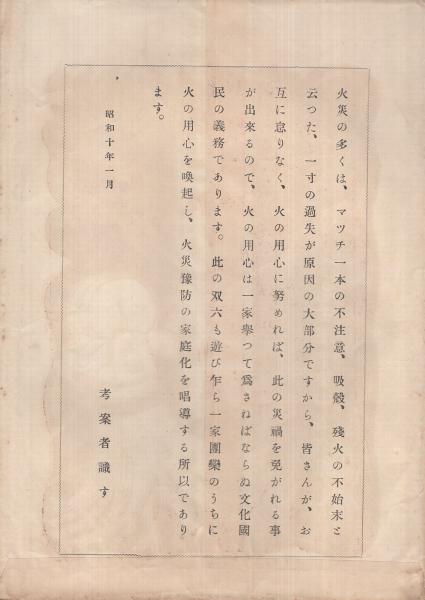 火災の多くは、マツチ一本の不注意、吸殼、殘火の不始末と
云つた、一寸の過失が原因の大部分ですから、皆さんが、お
互に怠りなく、火の用心に努めれば、此の災禍を免がれる事
が出來るので、火の用心は一家擧つて爲さねばならぬ文化國
民の義務であります。此の双六も遊び乍ら一家團欒のうちに
火の用心を喚起し、火災豫防の家庭化を唱導する所以であり
ます。
昭和十年一月
考案者識す